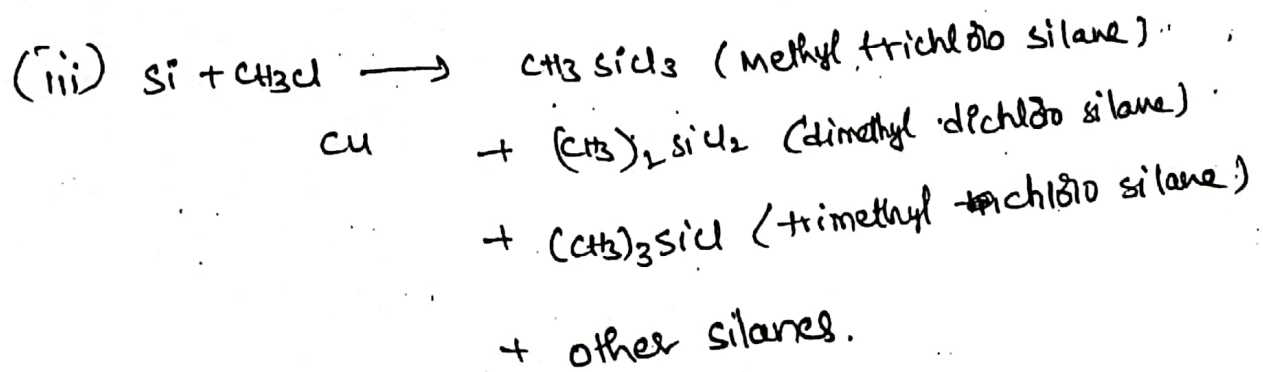 (iii) Si + CH3Cl ⟶ CH3 SiCl3 (Methyl trichloro silane)
Cu + (CH3)2 SiCl2 (dimethyl dichloro silane)
+ (CH3)3SiCl (trimethyl chloro silane)
+ other silanes.